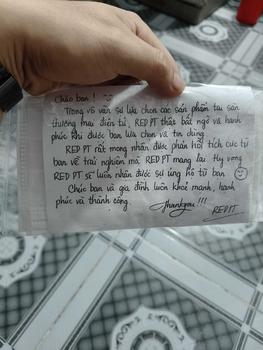 Chào bạn!
Trong vô vàn sự lựa chọn các sản phẩm tại sàn
thương mại điện tử, RED PT thật bất ngờ và hạnh
phúc khi được bạn lựa chọn và tin dùng.
RED PT rất mong nhận được phản hồi tích cực từ
bạn về trải nghiệm mà RED PT mang lại. Hy vọng
RED PT sẽ luôn nhận được sự ủng hộ từ bạn
Chúc bạn và gia đình luôn khoẻ mạnh, hạnh
phúc và thành công.
Thankyou!!!
REDPT